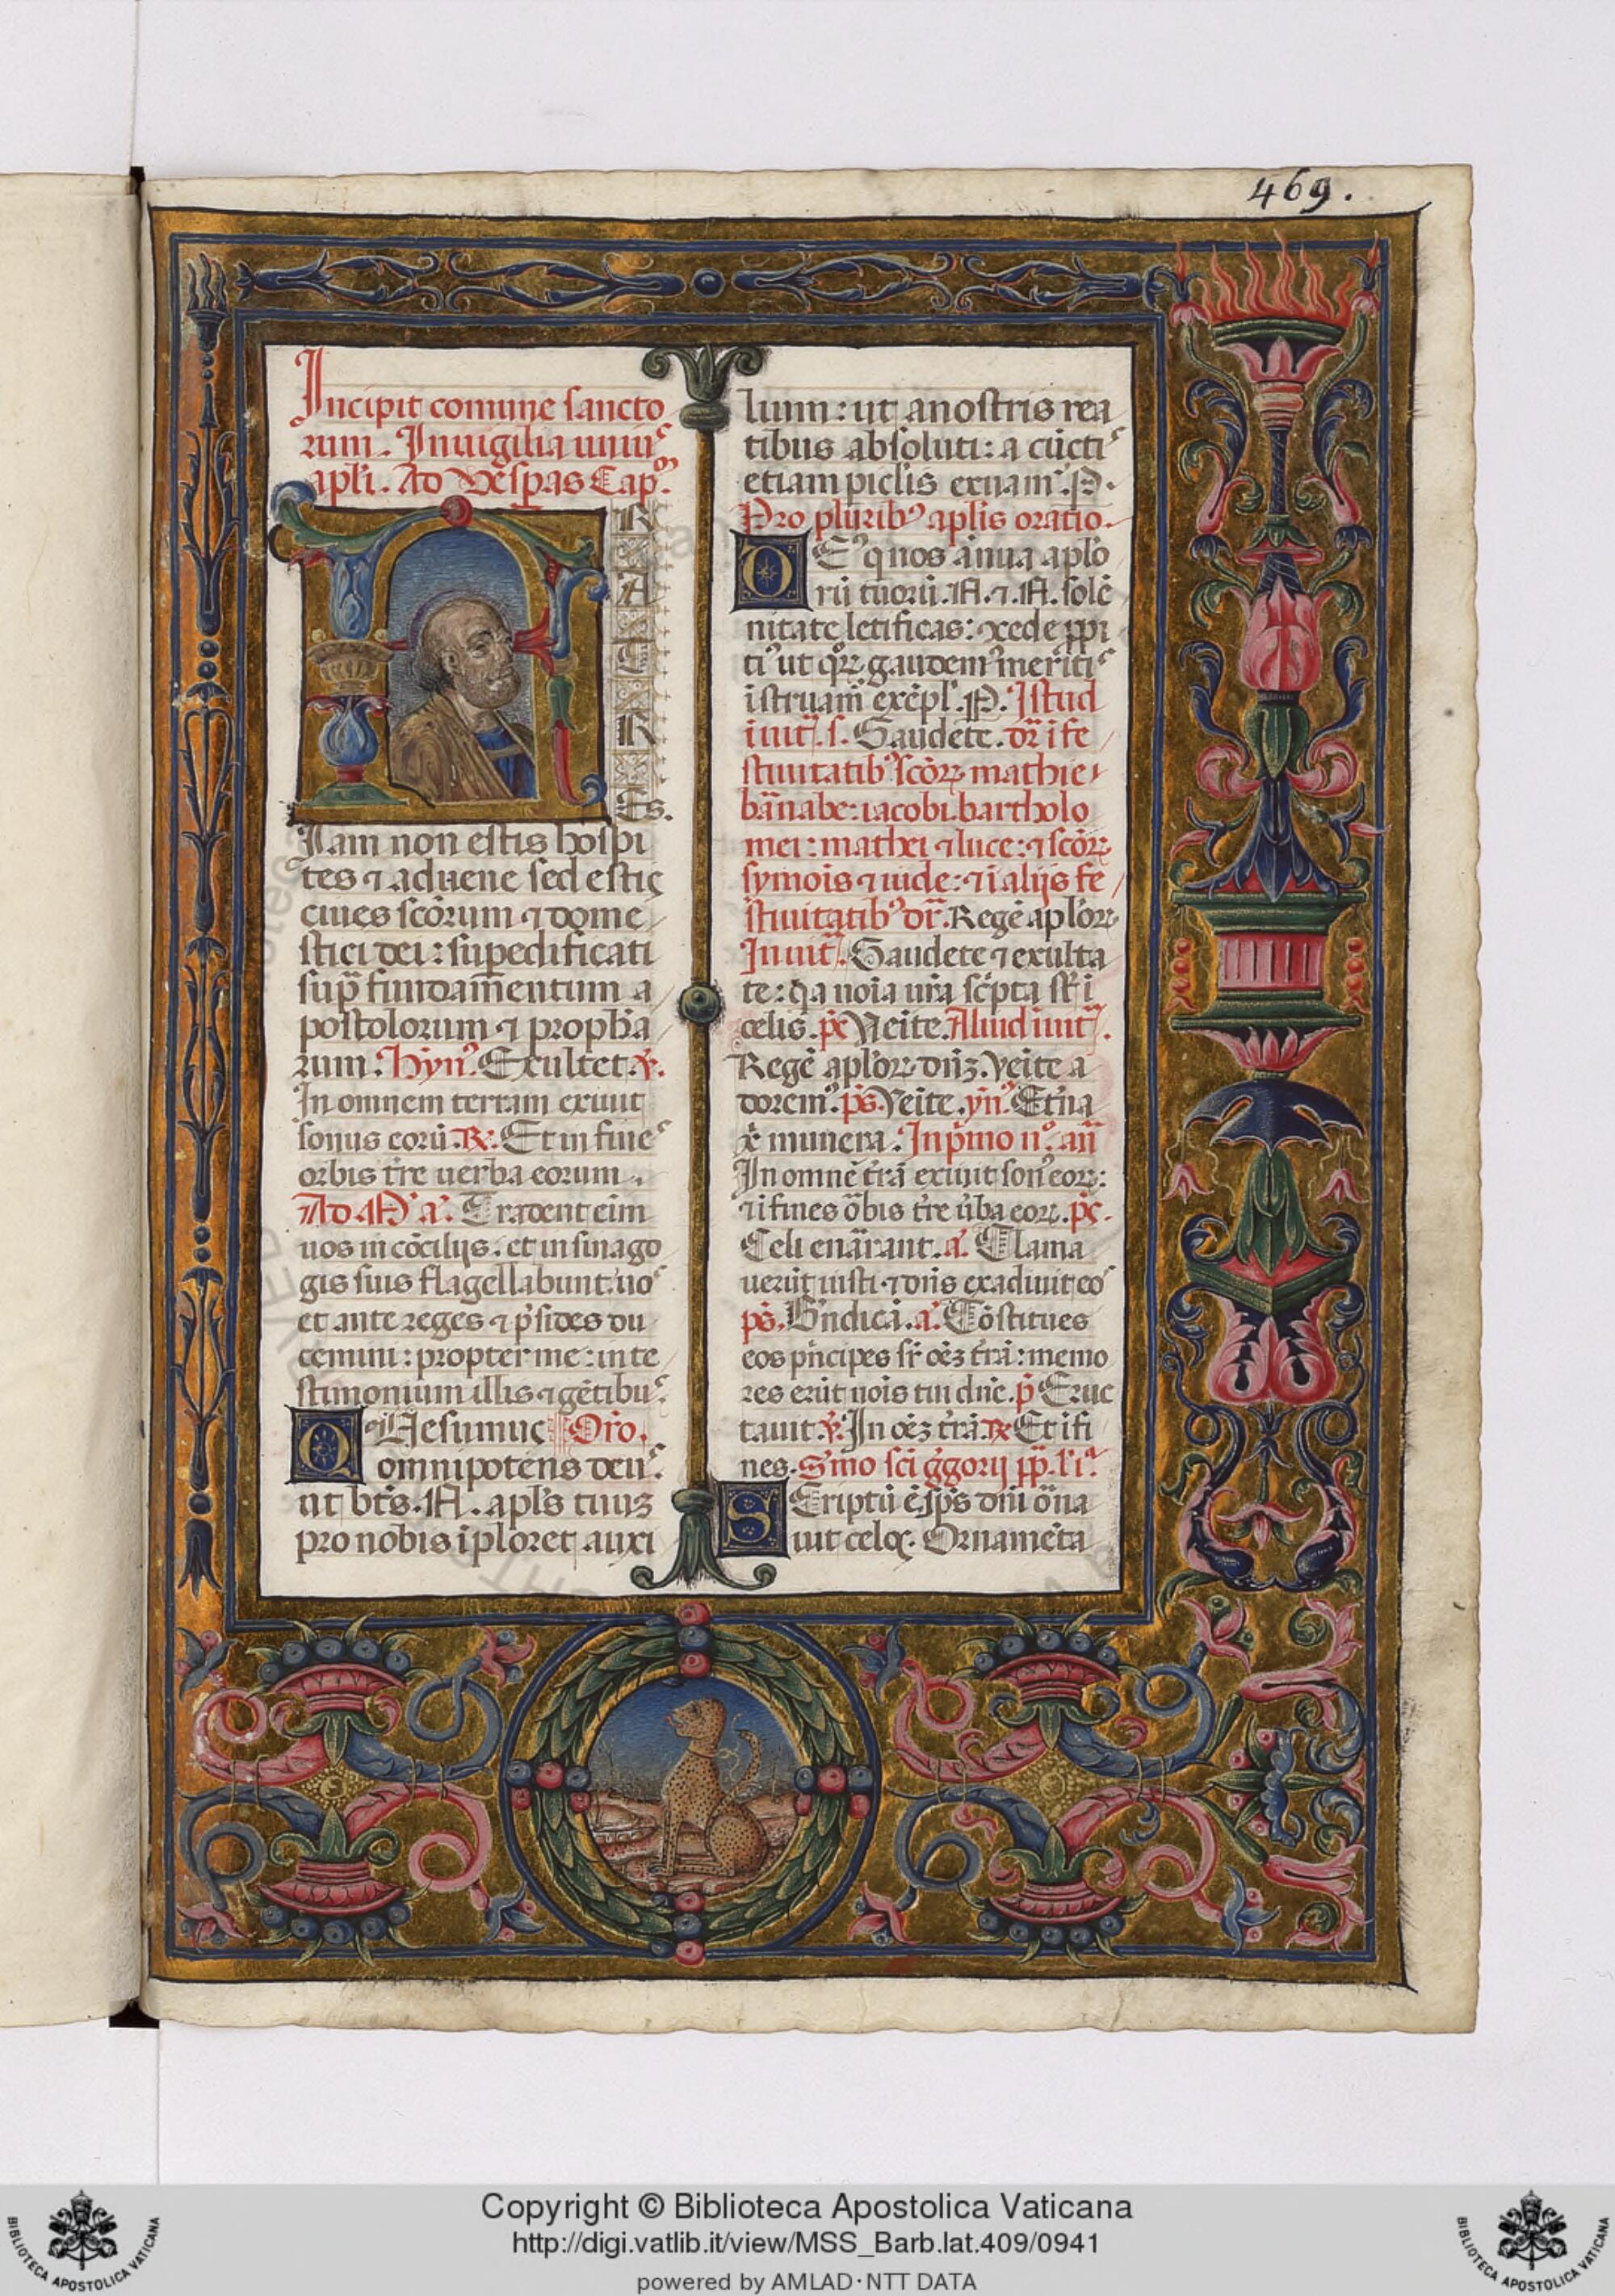 469.
Incipit comune sancto
rum. In uigilia uniꝰ
apl'i. Ad vesꝑas Cap.ᵐ
F
R
A
T
R
Es.
Iam non estis hospi
tes ⁊ aduene sed estis
ciues scōrum ⁊ dome
stici dei: suꝑedificati
supͣ fundam̄entum a
postolorum ⁊ propħa
rum. Hyn̄ꝰ. Exultet. ℣.
In omnem terram exiuit
sonus eorū. ℟. Et in fineˢ
orbis tr̄e uerba eorum.
Ad M̄ a͞. Tradent eim
uos in cōcilijs. et in sinago
gis suis flagellabunt uoˢ
et ante reges ⁊ p̄sides du
cemini: propter me: in te
stimonium illis ⁊ gētibuˢ.
QVaesumus Orō.
omnipotēns deuˢ.
ut bt̄s. N. apl's tuus
pro nobis īploret auxi
lium: ut a nostris rea
tibus absoluti: a cūctiˢ
etiam pic̄lis exuamꝰ. P.
Pro pluribꝰ apl'is oratio.
DEꝰ q nos ānua apl'o
rū tuorū. N. ⁊. N. solē
nitate letificas: ꝯcede ꝓpi
tiꝰ ut qͦꝝ gaudemꝰ meritiˢ
īstruam̄ exēpl'. P. Istud
inuit̄. s. Gaudete. dr̄ ī fe
stiuitatibꝰ scōꝝ mathie
bānabe: iacobi. bartholo
mei: mathei ⁊ luce: ⁊ scōꝝ
symōis ⁊ iude: ⁊ ī alijs fe
stiuitatibꝰ dr̄. Regē apl'oꝝ
Inuit̄. Gaudete ⁊ exulta
te: qa noīa ur̄a sc̄pta st̄ i
celis. ps̄ Veīte. Aliud inuit̄.
Regē apl'oꝝ dn̄ꝫ. Veīte a
doremꝰ. ps̄. Veīte. yn̄ꝰ. Et̄na
xp̄i munera. In p̄mo nͦ. an̄
In omnē tr̄ā exiuit sonꝰ eoꝝ:
⁊ ī fines ōbis tr̄e ūba eoꝝ. ps̄.
Celi enārant. a͞. Clama
uerūt iusti ⁊ dn̄s exaudiuit eoˢ
ps̄. Bn̄dicā. a͞. Cōstitues
eos pn̄cipes sr̄ oēꝫ tr̄ā: memo
res erūt noīs tui dn̄e. ps̄ Eruc
tauit ℣. In oēꝫ tr̄ā. ℟ Et ī fi
nes. S̄mo sc̄i ḡgorij pp̄. l'i.ͣ
SCriptū ē, sp̄s dn̄i ōna
uit celoˢ. Ornamēta
Copyright © Biblioteca Apostolica Vaticana
http://digi.vatlib.it/view/MSS_Barb.lat.409/0941
powered by AMLAD·NTT DATA
BIBLIOTECA APOSTOLICA VATICANA
BIBLIOTECA APOSTOLICA VATICANA